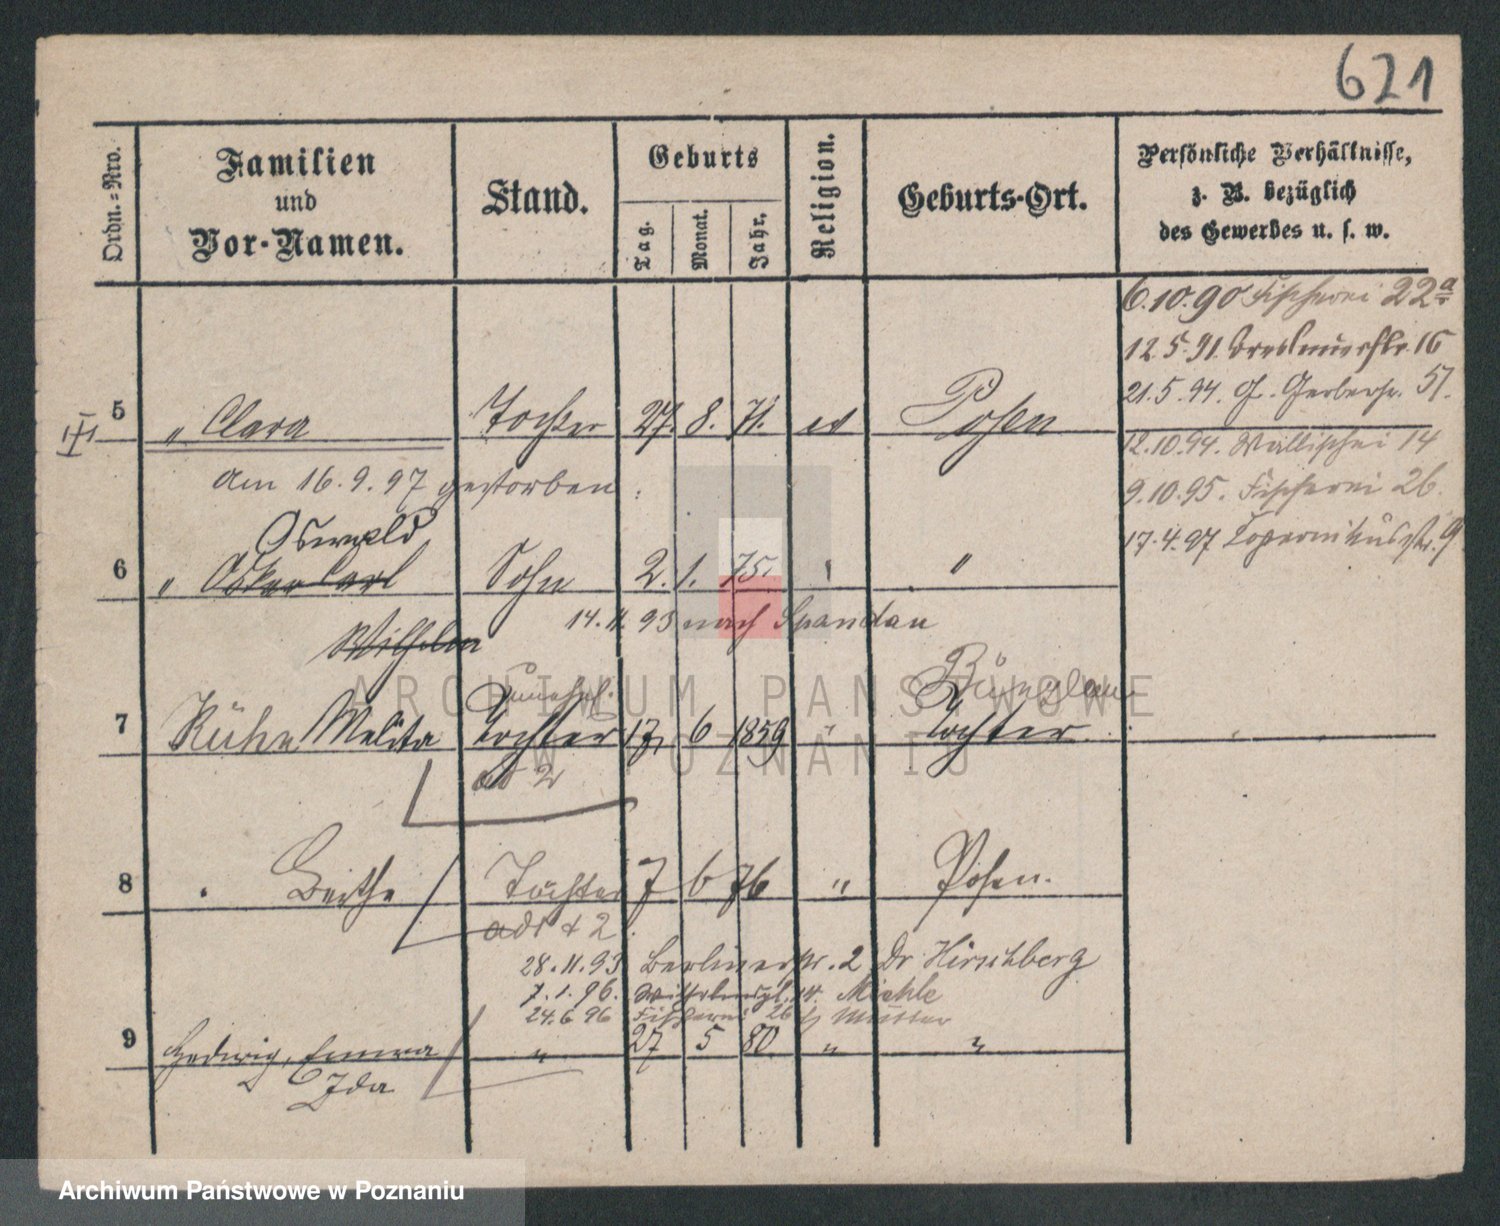 621
Ordn.=Nro.
Familien
und
Vor-Namen.
Stand.
Geburts
Tag.
Monat.
Jahr.
Religion.
Geburts-Ort.
Persönliche Verhältnisse,
z. B. bezüglich
des Gewerbes u. s. w.
6.10.90 Fischerei 22a
12.5.91. Breslauerstr. 16
21.5.94. Gr. Gerberstr. 51.
12.10.94. Wallischei 14
9.10.95. Fischerei 26.
17.4.97 Kopernikusstr. 9
5 " Clara Tochter 27. 8. 71. ev Posen
Am 16.9.97 gestorben.
Oswald
6 " Oskar Carl Sohn 2. 1. 75. " "
14.11.93 nach Spandau
Wilhelm
unehel. Bunzlau
7 Kühn Melita Tochter 17. 6 1859 " Tochter
ad 2
8 " Berthe Tochter 7 6 76 " Posen.
ad 2
28.11.93 Berlinerstr. 2 Dr Hirschberg
7.1.96. Wilhelmspl. 14. Miehle
24.6 96 Fischerei 26 b/ Mutter
9 Hedwig, Emma " 27 5 80 " "
Ida
ARCHIWUM PAŃSTWOWE
W POZNANIU
Archiwum Państwowe w Poznaniu